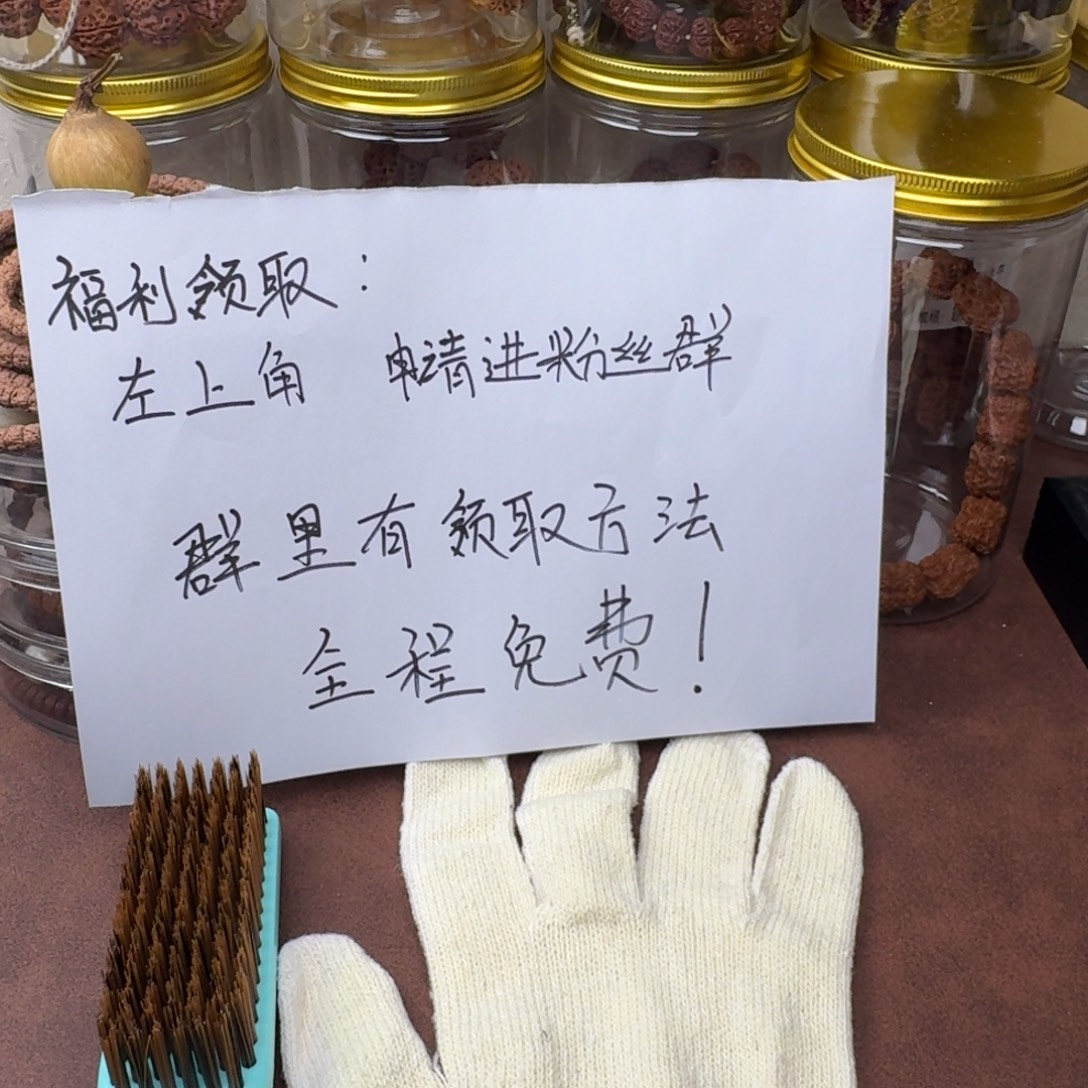 福利领取：
左上角 申请进粉丝群
群里有领取方法
全程免费！